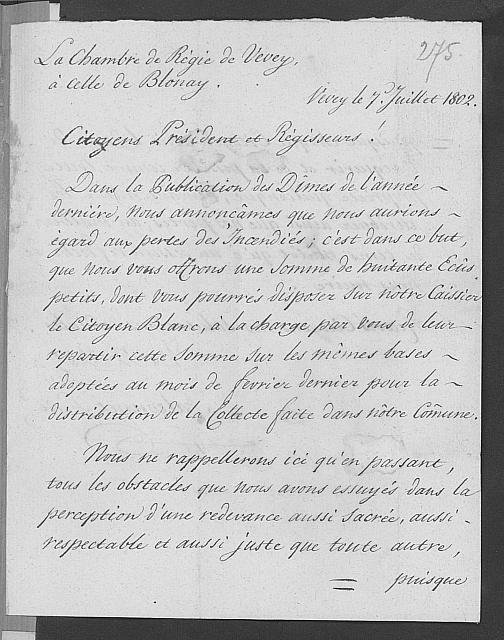 La Chambre de Régie de Vevey,
à celle de Blonay.
275.
Vevey le 7.e Juillet 1802.
Citoyens Président et Régisseurs !
Dans la Publication des Dîmes de l'année ~
derniére, Nous annonçâmes que nous aurions ~
égard aux pertes des Incendiés ; c'est dans ce but,
que nous vous offrons une somme de huitante Ecûs
petits, dont vous pourrés disposer sur nôtre Caissier
le Citoyen Blanc, à la charge par vous de leur
repartir cette somme sur les mêmes bases ~
adoptées au mois de fevrier dernier pour la ~
distribution de la Collecte faite dans nôtre Com̃une.
Nous ne rappellerons ici qu'en passant,
tous les obstacles que nous avons essuyés dans la
perception d'une redevance aussi sacrée, aussi -
respectable et aussi juste que toute autre,
puisque